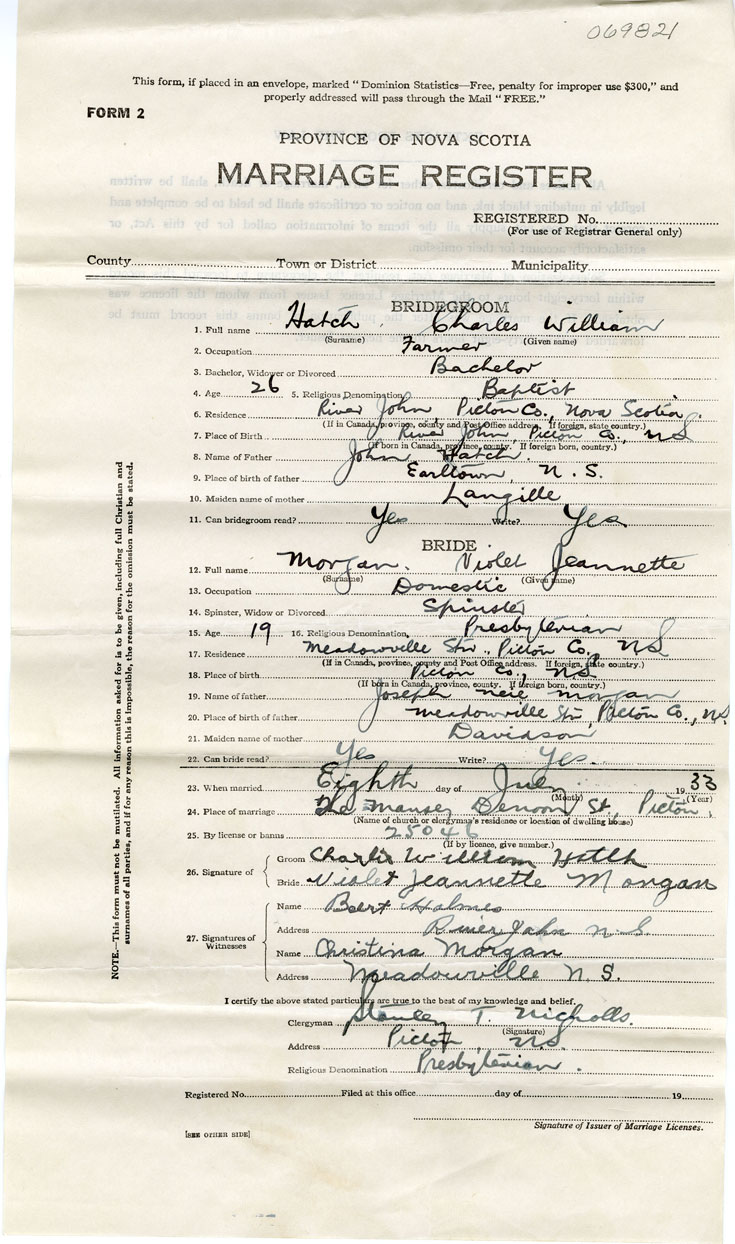 069821
This form, if placed in an envelope, marked "Dominion Statistics—Free, penalty for improper use $300," and
properly addressed will pass through the Mail "FREE."
FORM 2
PROVINCE OF NOVA SCOTIA
MARRIAGE REGISTER
REGISTERED No.
(For use of Registrar General only)
County Town or District Municipality
BRIDEGROOM
1. Full name Hatch Charles William
(Surname) (Given name)
2. Occupation Farmer
3. Bachelor, Widower or Divorced Bachelor
4. Age 26 5. Religious Denomination Baptist
6. Residence River John, Pictou Co., Nova Scotia.
(If in Canada, province, county and Post Office address. If foreign, state country.)
7. Place of Birth River John, Pictou Co., N.S.
(If born in Canada, province, county. If foreign born, country.)
8. Name of Father John Hatch.
9. Place of birth of father Earltown, N.S.
10. Maiden name of mother Langille
11. Can bridegroom read? Yes Write? Yes
BRIDE
12. Full name Morgan. Violet Jeannette
(Surname) (Given name)
13. Occupation Domestic
14. Spinster, Widow or Divorced Spinster
15. Age 19 16. Religious Denomination Presbyterian
17. Residence Meadowville Stn., Pictou Co., N.S.
(If in Canada, province, county and Post Office address. If foreign, state country.)
18. Place of birth Pictou Co., N.S.
(If born in Canada, province, county. If foreign born, country.)
19. Name of father Joseph Morgan
20. Place of birth of father Meadowville Stn, Pictou Co., N.S.
21. Maiden name of mother Davidson
22. Can bride read? Yes Write? Yes.
23. When married Eighth day of July 1933
(Month) (Year)
24. Place of marriage The Manse, Denoon St, Pictou,
(Name of church or clergyman's residence or location of dwelling house)
25. By license or banns 25046
(If by licence, give number.)
26. Signature of Groom Charlie William Hatch
Bride Violet Jeannette Morgan
27. Signatures of Witnesses
Name Bert Holmes
Address River John N.S.
Name Christina Morgan
Address Meadowville N.S.
I certify the above stated particulars are true to the best of my knowledge and belief.
Clergyman Stanley T. Nicholls.
(Signature)
Address Pictou, N.S.
Religious Denomination Presbyterian.
Registered No. Filed at this office day of 19
Signature of Issuer of Marriage Licenses.
[SEE OTHER SIDE]
NOTE.—This form must not be mutilated. All information asked for is to be given, including full Christian and
surnames of all parties, and if for any reason this is impossible, the reason for the omission must be stated.